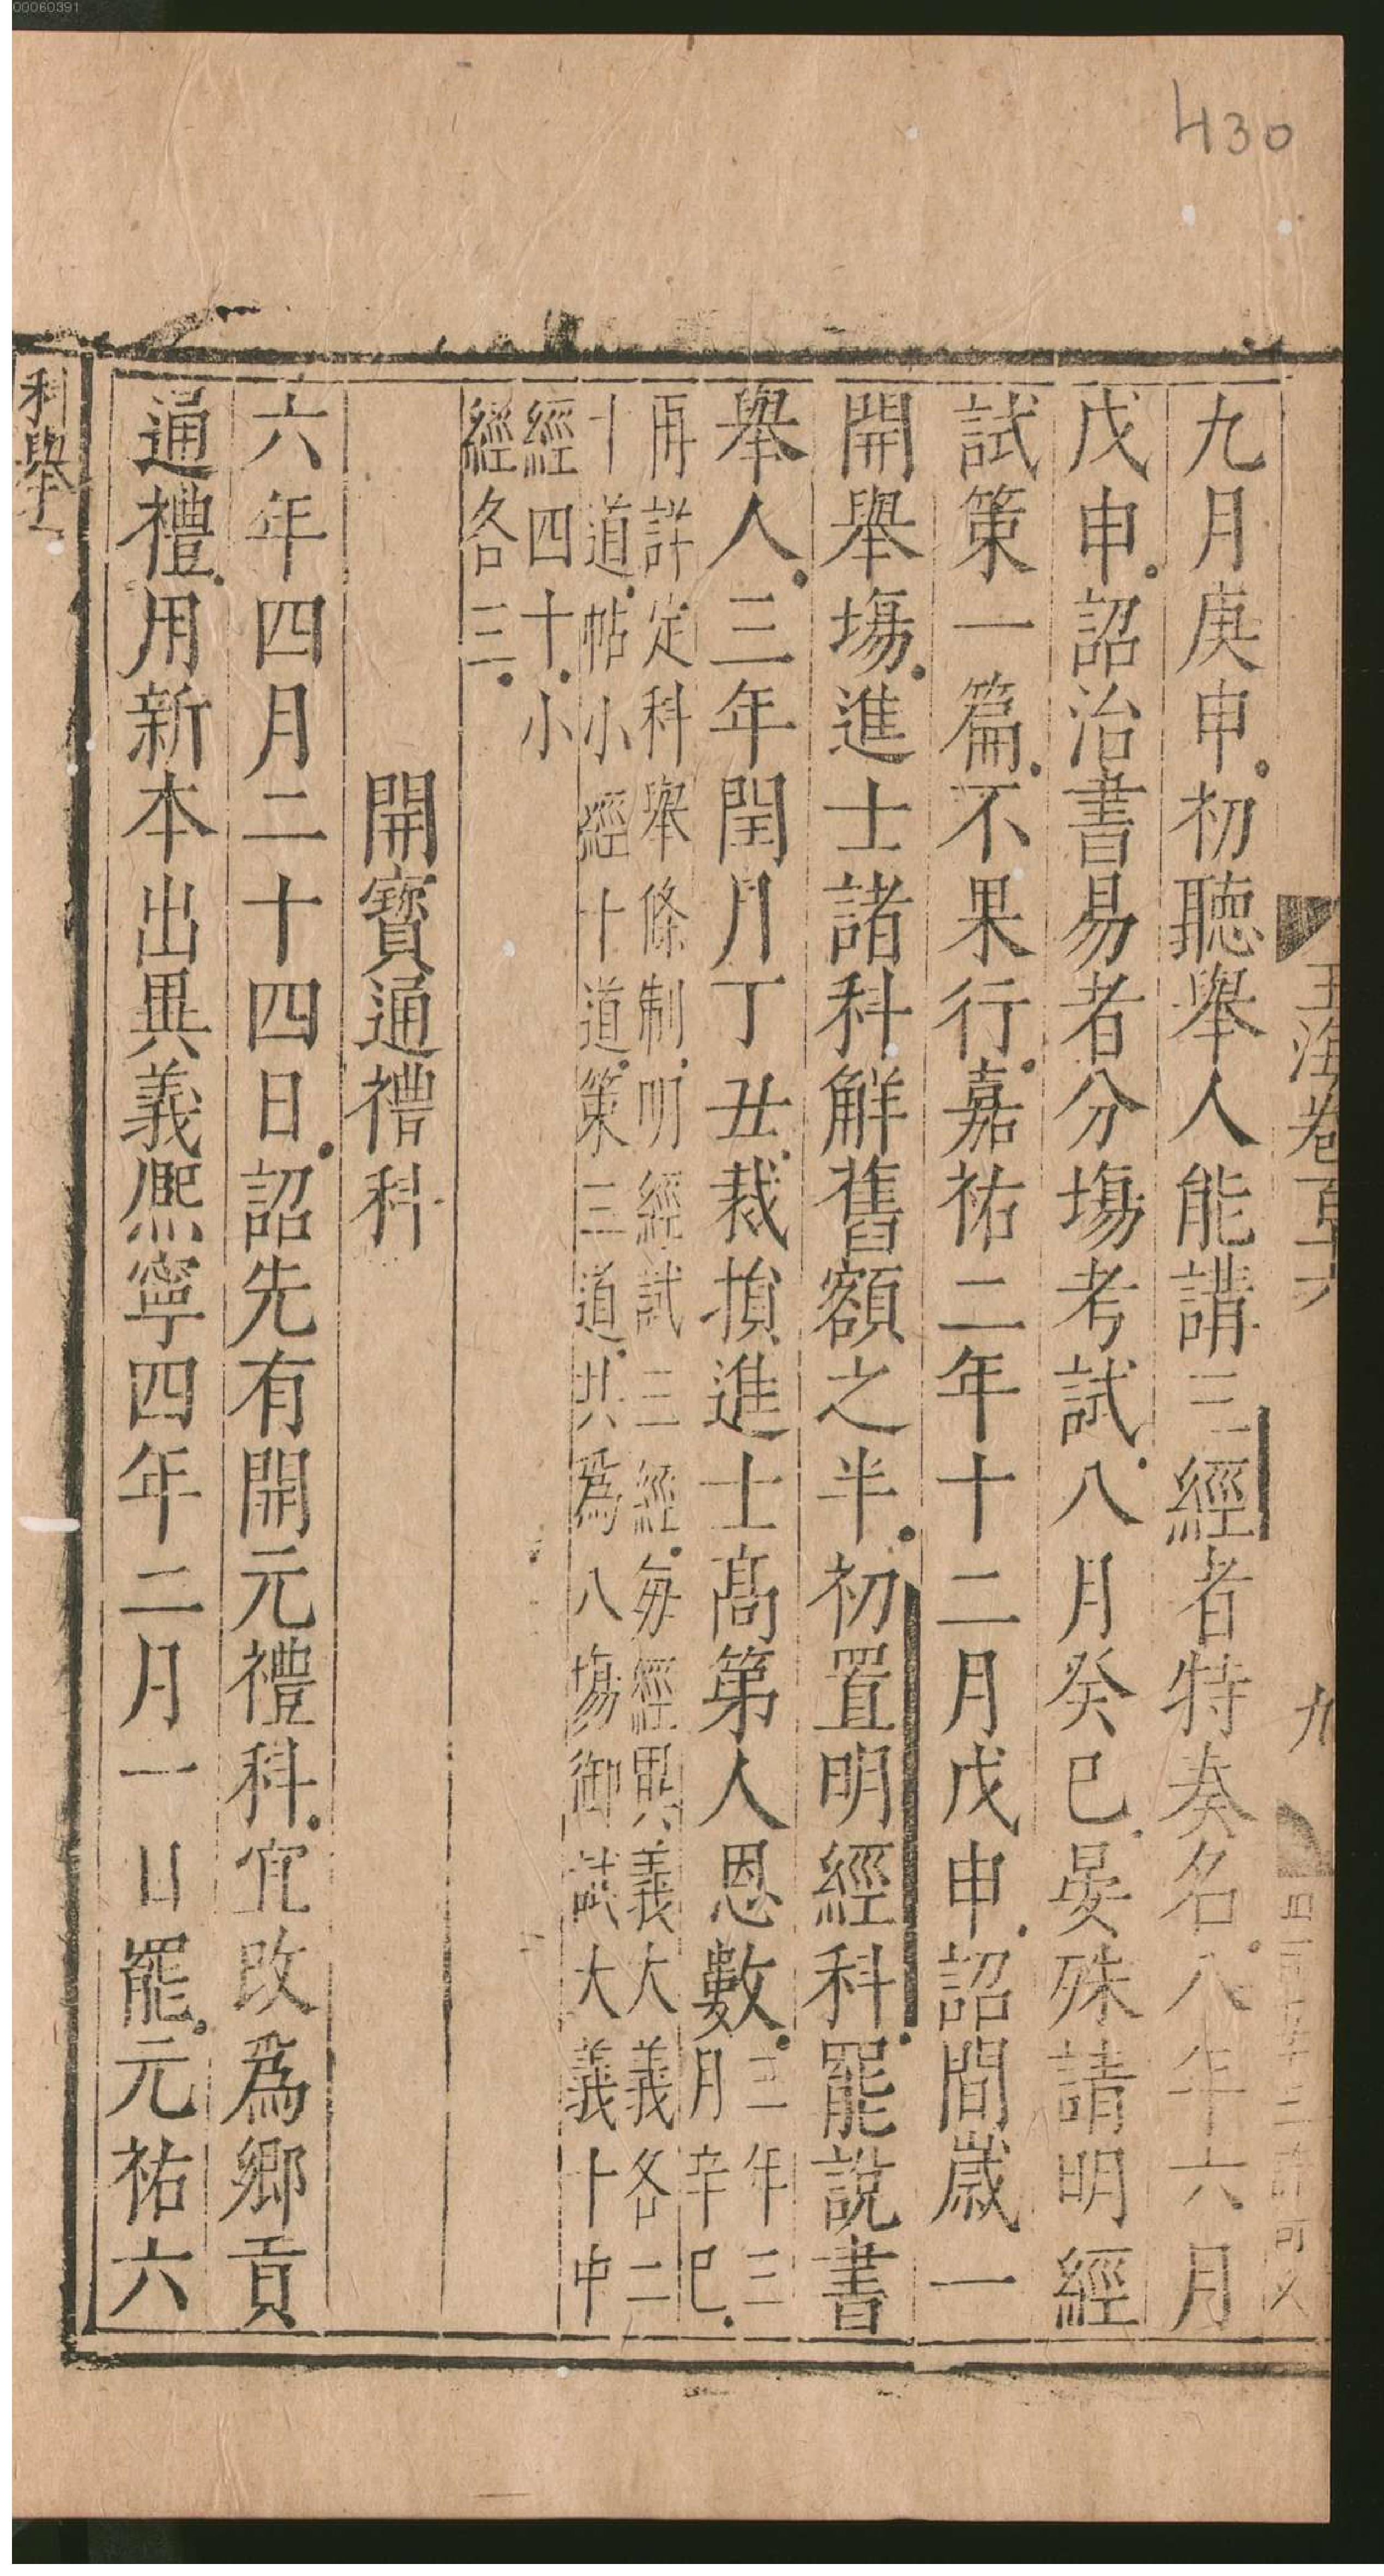 00060391
430
玉海卷百十六
九
九月庚申初聽舉人能講三經者特奏名八年六月
戊申詔治書易者分塲考試八月癸巳晏殊請明經
試策一篇不果行嘉祐二年十二月戊申詔間歲一
開舉塲進士諸科解舊額之半初置明經科罷說書
舉人三年閏月丁丑裁損進士高第人恩數三年三
月辛巳
再詳定科舉條制明經試三經每經墨義大義各二
十道帖小經十道策三道共爲八塲御試大義十中
經四十小
經各三
開寳通禮科
六年四月二十四日詔先有開元禮科宜改爲鄉貢
通禮用新本出異義熈寧四年二月一日罷元祐六
科舉
00060391